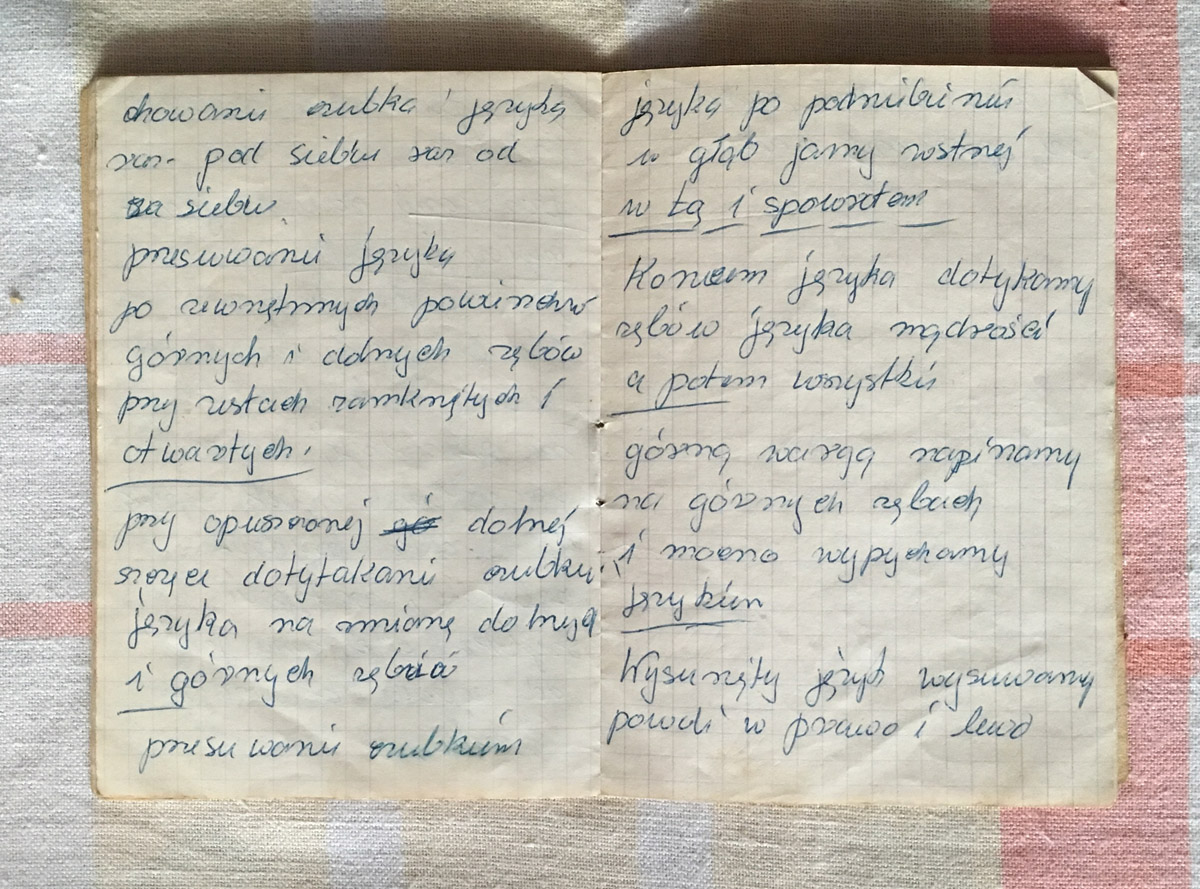 chowanie czubka języka
raz pod siebie raz od
za siebie.
przesuwanie języka
po zewnętrznych powierzchni
górnych i dolnych zębów
przy ustach zamkniętych i
otwartych.
przy opuszczonej gó dolnej
szczęce dotytakanie czubka
języka na zmianę dolnych
i górnych zębów
przesuwanie czubkiem
języka po podniebieniu
w głąb jamy ustnej
w tą i spowrotem
Koncem języka dotykamy
zębów języka mądrości
a potem wszystkie
górną wargą napinamy
na górnych zębach
i mocno wypychamy
językiem
Wysunięty język wysuwamy
powoli w prawo i lewo